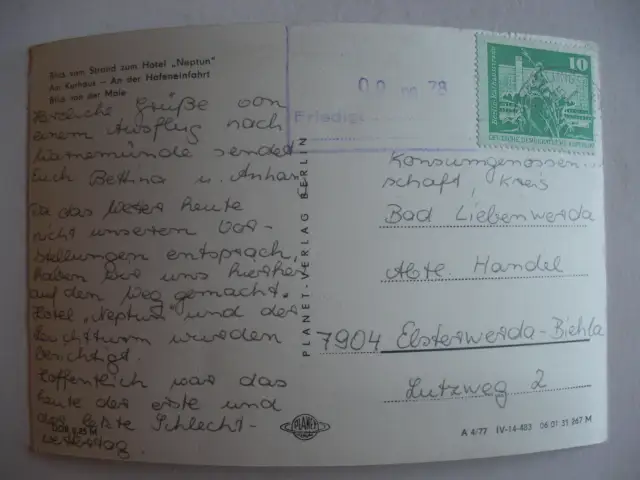 Blick vom Strand zum Hotel „Neptun"
Am Kurhaus – An der Hafeneinfahrt
Blick von der Mole
Herzliche Grüße von
einem Ausflug nach
Warnemünde sendet
Euch Bettina u. Anhang
Da das Wetter heute
nicht unseren Vor-
stellungen entsprach,
haben wir uns hierher
auf den Weg gemacht.
Hotel „Neptun" und der
Leuchtturm wurden
besichtigt.
Hoffentlich war das
heute der erste und
der letzte Schlecht-
wettertag.
PLANET-VERLAG BERLIN
PLANET
78
Friedl
10
DEUTSCHE DEMOKRATISCHE REPUBLIK
Konsumgenossen-
schaft, Kreis
Bad Liebenwerda
Abt. Handel
7904 Elsterwerda-Biehla
Lutzweg 2
A 4/77 IV-14-483 06 01 31 267 M